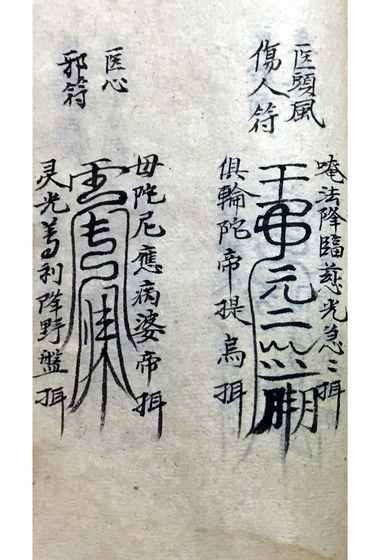 医頭風
傷人符
唵法降臨慈光急〻揖
俱輪陀帝提烏揖
医心
邪符
毋陀尼應病婆帝揖
灵光善利降野盤揖